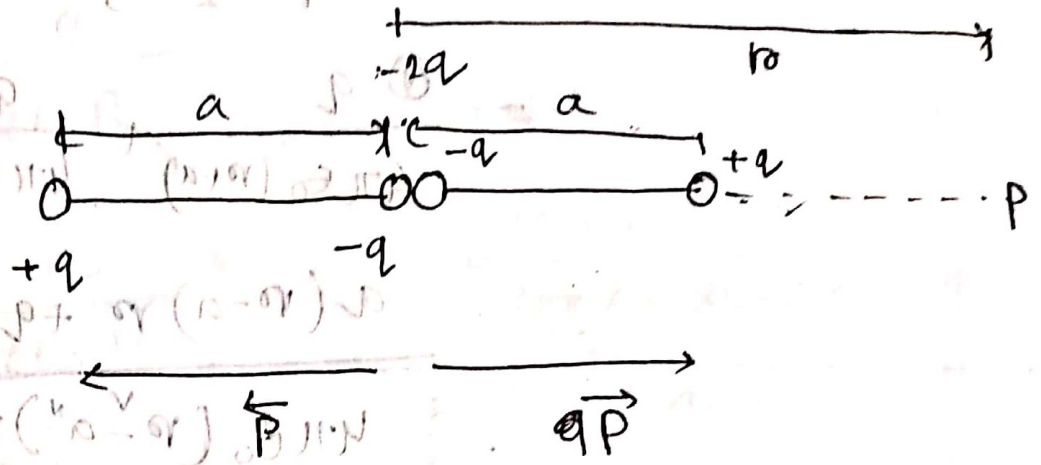 r
-2q
a a
-q +q
P
+q -q
P qP